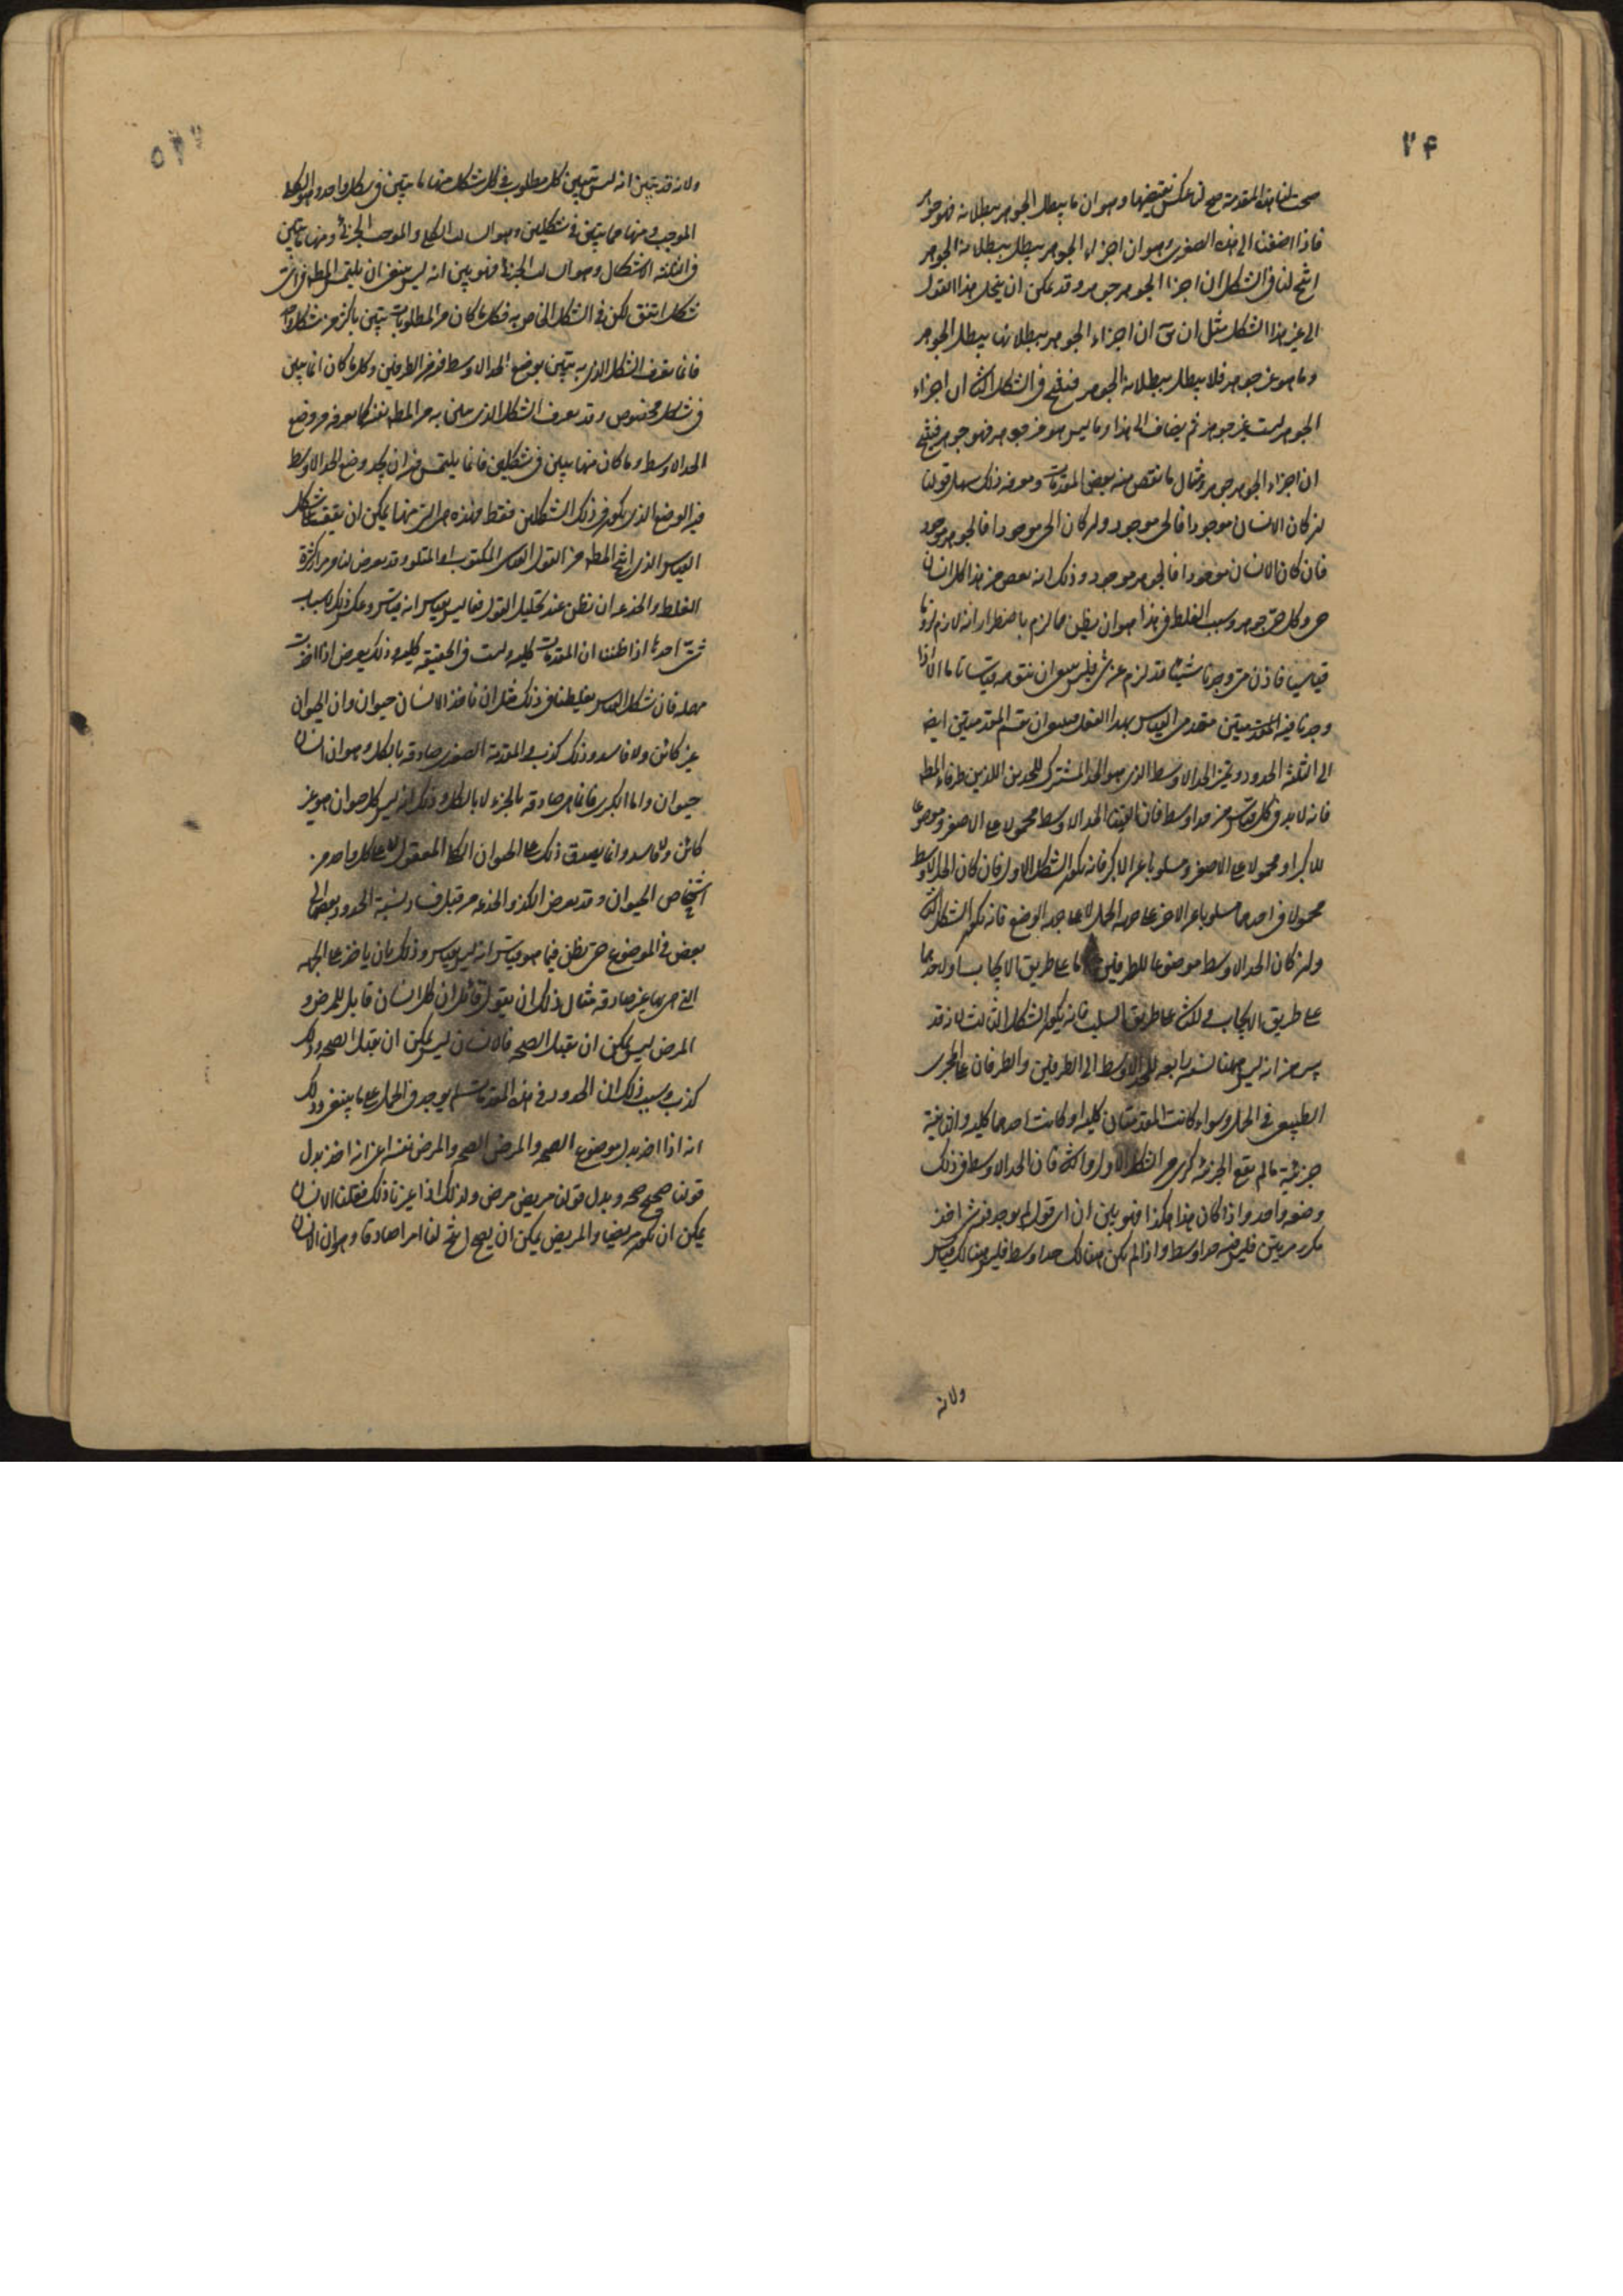 ۷۴
صحت لنا هذه المقدمة صح لنا عكس نقيضها وهو ان ما يبطل الجوهر ببطلانه فهو جوهر
فاذا اضفنا الى هذه الصغرى وهو ان اجزاء الجوهر يبطل ببطلانها الجوهر
انتج لنا في الشكل ان اجزاء الجوهر جوهر وقد يمكن ان ينحل هذا القول
الى غير هذا الشكل مثل ان ان اجزاء الجوهر ببطلانها يبطل الجوهر
وما هو غير جوهر فلا يبطل ببطلانه الجوهر فينتج في الشكل ان اجزاء
الجوهر ليست غير جوهر ثم يضاف الى هذا وما ليس هو غير جوهر فهو جوهر فينتج
ان اجزاء الجوهر جوهر ومثال ما نقص منه بعض المقدمات ذلك سهل قولنا
ان كان الانسان موجودا فالحي موجود وان كان الحي موجودا فالجوهر موجود
فان كان الانسان موجودا فالجوهر موجود وذلك انه من هذا كل انسان
حي وكل حي جوهر وسبب الغلط في هذا هو ان يظن ما لزم باضطرار انه لازم لزوما
قياسيا فاذن متى وجدنا شيئا قد لزم عن شيء فليس ان قياسا ما الا اذا
وجدنا فيه المقدمتين ان المقدمتين ايضا
الى الثلثة الحدود ويميز الحد الاوسط الذي هو الحد المشترك للحدين اللذين طرفاء المط
فانه لا بد في كل قياس من حد اوسط فان الفينا الحد الاوسط محمولا على الاصغر وموضوعا
للاكبر او محمولا على الاصغر ومسلوبا عن الاكبر فانه يكون الشكل الاول فان كان الحد الاوسط
محمولا في احدهما مسلوبا عن الاخر على جهة الحمل لا على جهة الوضع فانه يكون الشكل
وان كان الحد الاوسط موضوعا للطرفين اما على طريق الايجاب او لاحدهما
على طريق الايجاب و على طريق السلب فانه يكون الشكل الثالث لانه قد
انه ليس ههنا نسبة رابعة للحد الاوسط الى الطرفين والطرفان على المجرى
الطبيعي في الحمل وسواء كانت المقدمتان كلية او كانت احدهما كلية والثانية
جزئية ما لم تقع الجزئية كبرى في الشكل الاول و فان الحد الاوسط في ذلك
وضعه واحد واذا كان هذا هكذا فهو بين ان اي قول لم يوجد فيه شيء اخذ
مكررا مرتين فليس فيه حد اوسط واذا لم يكن هنالك حد اوسط فليس هنالك قياس
ولانه
ولانه قد تبين انه ليس يتبين كل مطلوب في كل شكل منها ما يتبين في شكل واحد وهو الكلي
الموجب ومنها ما يتبين في شكلين وهو السالب الكلي والموجب الجزئي ومنها ما يتبين
في الثلثة الاشكال وهو السالب الجزئي فهو بين انه ليس ينبغي ان يلتمس المط في اي
شكل اتفق لكن في الشكل الخاص به فكل ما كان من المطلوبات يتبين باكثر من شكل واحد
فانما يعرف الشكل الذي به يتبين بوضع الحد الاوسط فيه من الطرفين وكل ما كان انما يبين
في شكل مخصوص وقد يعرف الشكل الذي يبين به من المط نفسه كما يعرفه من وضع
الحد الاوسط وما كان منها يبين في شكلين فانما يلتمس فيه ان يجد وضع الحد الاوسط
فيه الوضع الذي يكون في ذلك الشكلين فقط فهذه هي التي منها يمكن ان نقف على شكل
القياس الذي انتج المط من القول القياسي المكتوب او المتلو وقد يعرض لنا من اكثرة
الغلط والخدعة ان نظن عند تحليل القول فيما ليس بقياس انه قياس وعكس ذلك لاسباب
شتى احدها اذا ظننا ان المقدمات كلية وليست في الحقيقة كلية وذلك يعرض اذا اخذت
مهملة فان شكل القياس يغلطنا في ذلك مثل ان ناخذ الانسان حيوان وان الحيوان
غير كائن ولا فاسد وذلك كذب والمقدمة الصغرى صادقة بالكل وهو ان الانسان
حيوان واما الكبرى فانما هي صادقة بالجزء لا بالكل وذلك انه ليس كل حيوان هو غير
كائن ولا فاسد وانما يصدق ذلك على الحيوان الكلي المعقول لا على كل واحد من
اشخاص الحيوان وقد يعرض الكذب والخدعة من قبل فساد نسبة الحدود بعضها الى
بعض في الموضوع حتى يظن فيما هو قياس انه ليس بقياس وذلك بان ياخذ على الجهة
التي هي بها غير صادقة مثال ذلك ان يقول قائل ان كل انسان قابل للمرض و
المرض ليس يمكن ان يقبل الصحة فالانسان ليس يمكن ان يقبل الصحة وذلك
كذب وسبب ذلك ان الحدود في هذه المقدمات لم يوجد في الحمل على ما ينبغي وذلك
انه اذا اخذ بدل موضوع الصحة والمرض الصحة والمرض نفسه اعني انه اخذ بدل
قولنا صحيح صحة وبدل قولنا مريض مرض ولذلك اذا غيرنا ذلك فقلنا الانسان
يمكن ان يكون مريضا والمريض يمكن ان يصح انتج لنا امرا صادقا وهو ان الانسان